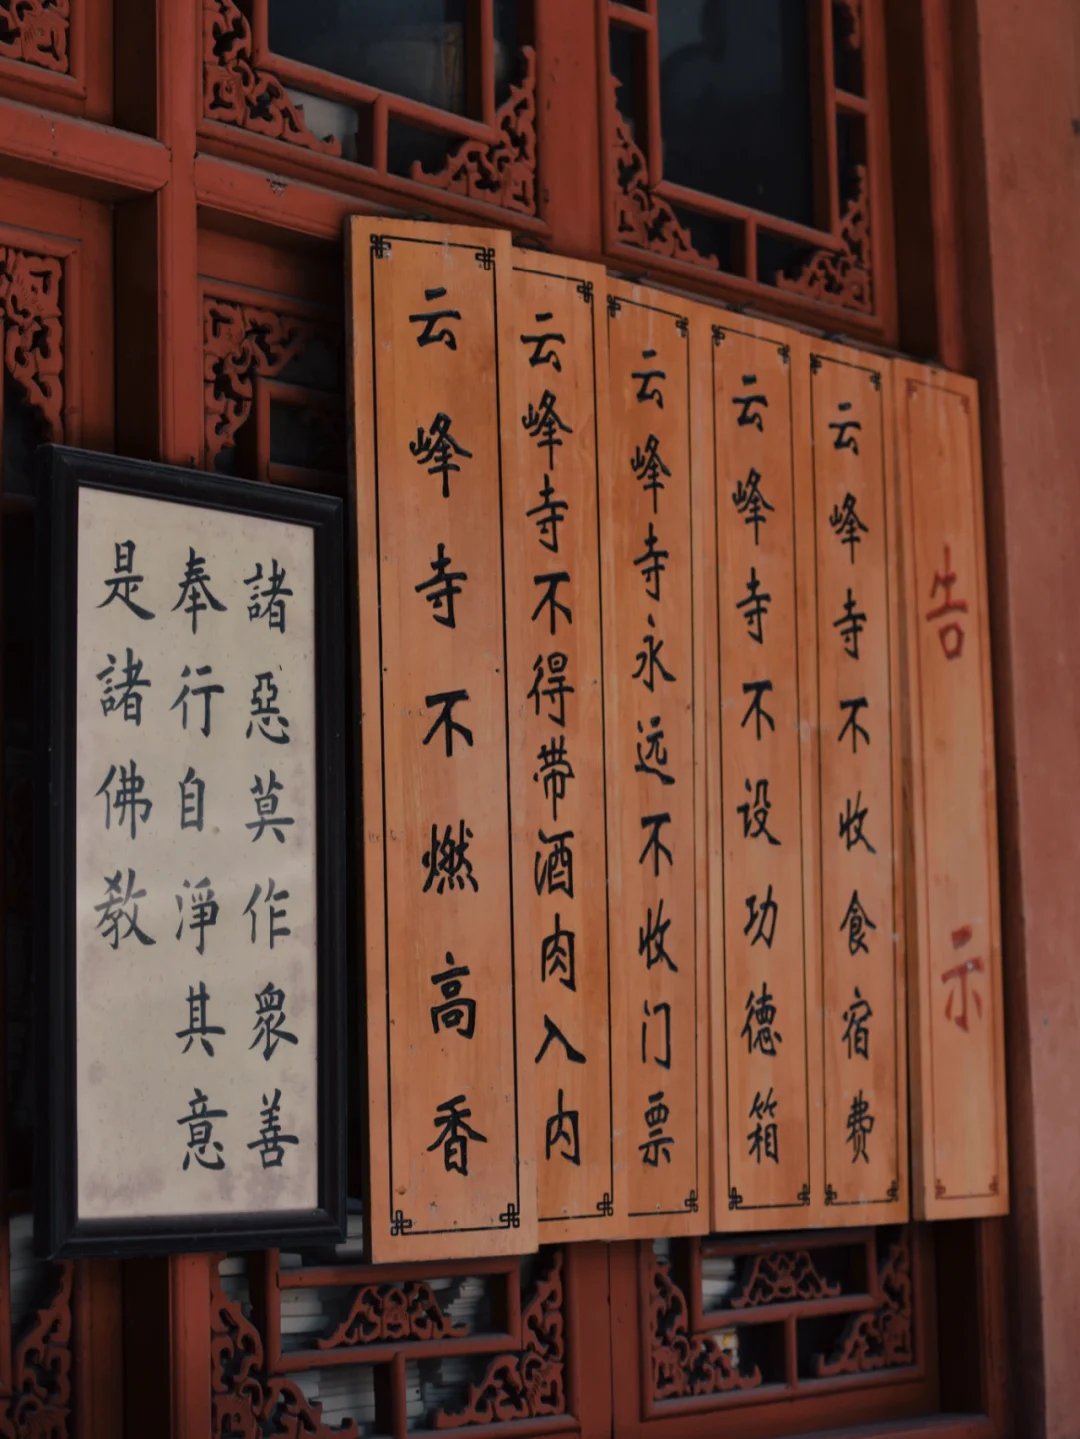 告示
云峰寺不收食宿费
云峰寺不设功德箱
云峰寺永远不收门票
云峰寺不得带酒肉入内
云峰寺不燃高香
諸惡莫作眾善
奉行自淨其意
是諸佛教